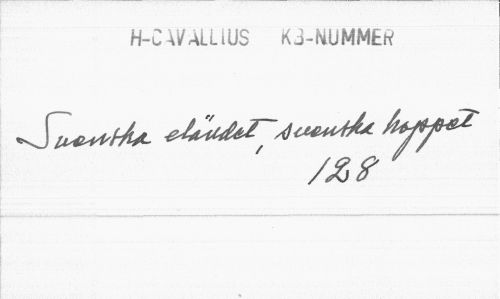 H-CAVALLIUS KB-NUMMER
Svenska eländet, svenska hoppet
128